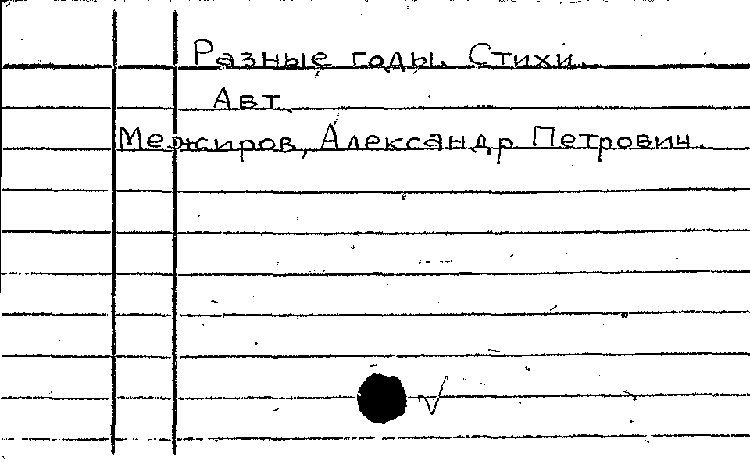 Разные годы. Стихи.
Авт.
Межиров, Александр Петрович.